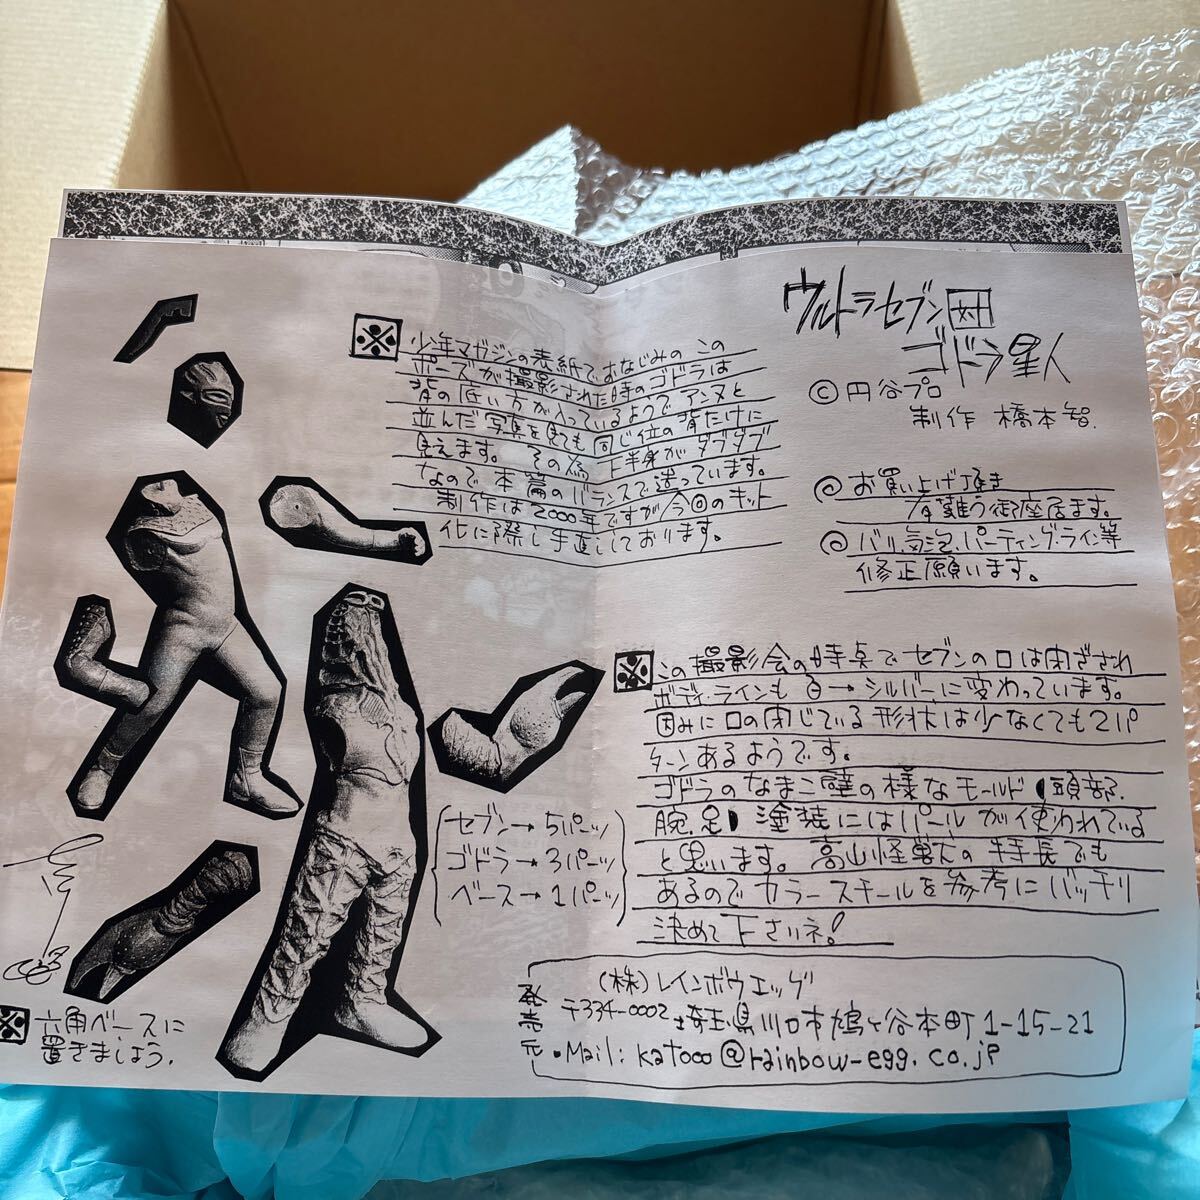 ウルトラセブン対
ゴドラ星人
©円谷プロ
制作 橋本智.
◎お買い上げ頂き
有難う御座居ます。
◎バリ、気泡、パーティング・ライン等
修正願います。
※少年マガジンの表紙でおなじみの この
ポーズが撮影された時のゴドラは
背の低い方が入っているようでアンヌと
並んだ写真を見ても同じ位の背たけに
見えます。その為、上半身がダブダブ
なので本篇のバランスで造っています。
制作は2000年ですが今回のキット
化に際し手直ししております。
※この撮影会の時点でセブンの口は閉ざされ
ボディ・ラインも白→シルバーに変わっています。
因みに口の閉じている形状は少なくても2パ
ターンあるようです。
ゴドラのなまこ壁の様なモールド(頭部.
腕.足)塗装にはパールが使われている
と思います。高山怪獣の特長でも
あるのでカラースチールを参考にバッチリ
決めて下さいネ!
セブン→5パーツ
ゴドラ→3パーツ
ベース→1パーツ
※六角ベースに
置きましょう.
発売元
(株)レインボウエッグ
〒334-0002 埼玉県川口市鳩ヶ谷本町1-15-21
•Mail: katooo@rainbow-egg.co.jp